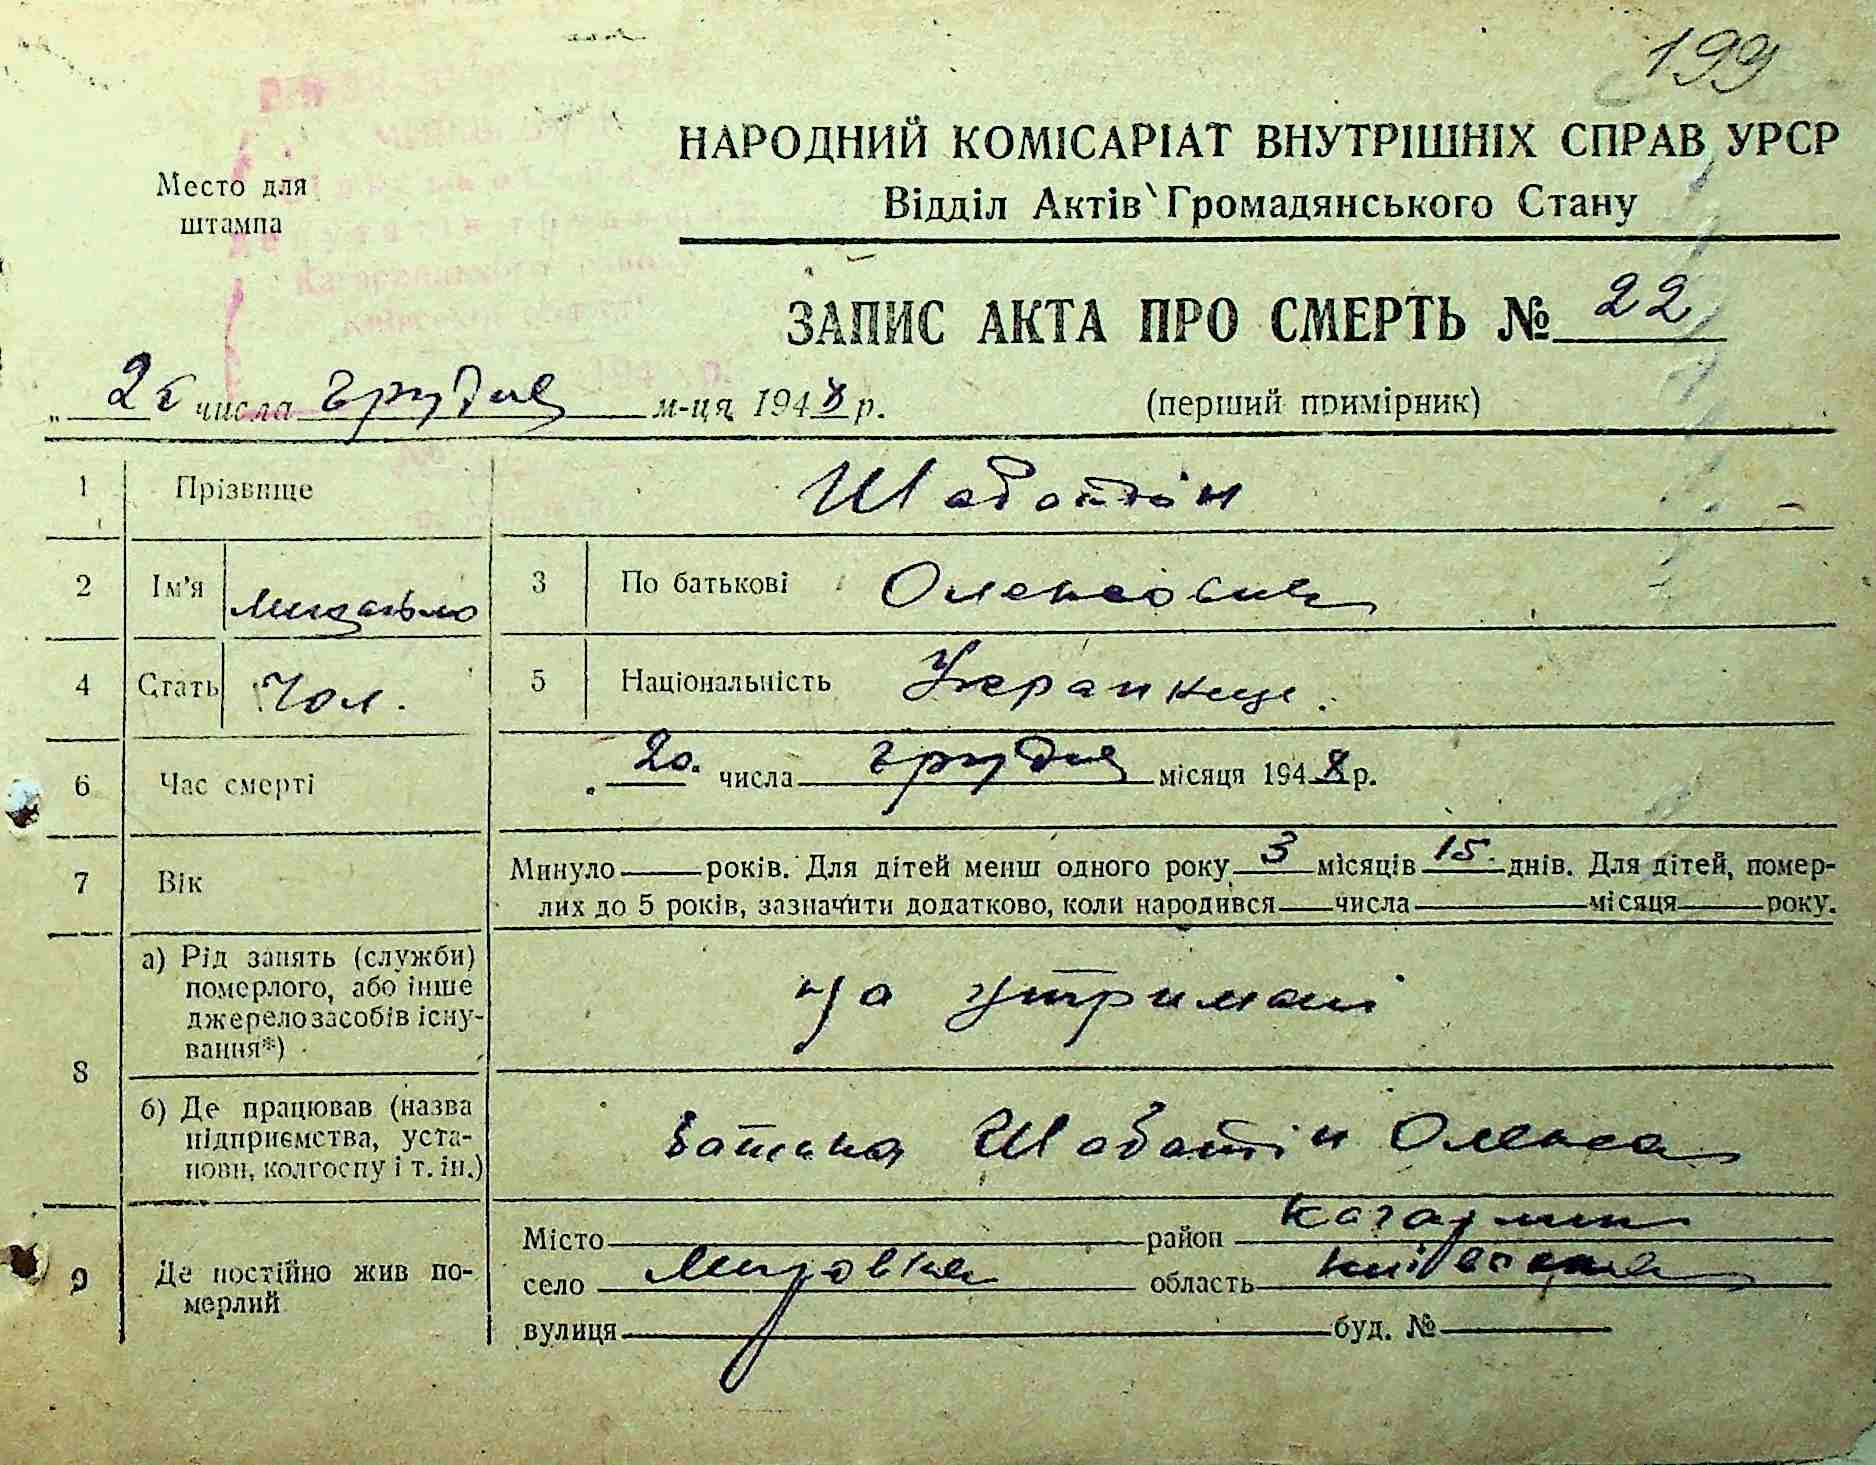 199
НАРОДНИЙ КОМІСАРІАТ ВНУТРІШНІХ СПРАВ УРСР
Відділ Актів Громадянського Стану
Место для
штампа
ЗАПИС АКТА ПРО СМЕРТЬ № 22
числа грудня м-ця 1948 р.
(перший примірник)
1 Прізвище Шабатін
2 Ім'я Михайло 3 По батькові Олексович
4 Стать Чол. 5 Національність Українець.
6 Час смерті 20. числа грудня місяця 1948 р.
7 Вік Минуло року років. Для дітей менш одного року 3 місяців 15. днів. Для дітей, помер-
лих до 5 років, зазначити додатково, коли народився числа місяця року.
8 а) Рід занять (служби)
померлого, або інше
джерело засобів існу-
вання*)
на утримані
б) Де працював (назва
підприємства, уста-
нови, колгоспу і т. ін.)
батька Шабатін Олекса
9 Де постійно жив по-
мерлий
Місто район Кагарлик
село Мировка область Київська
вулиця буд. №